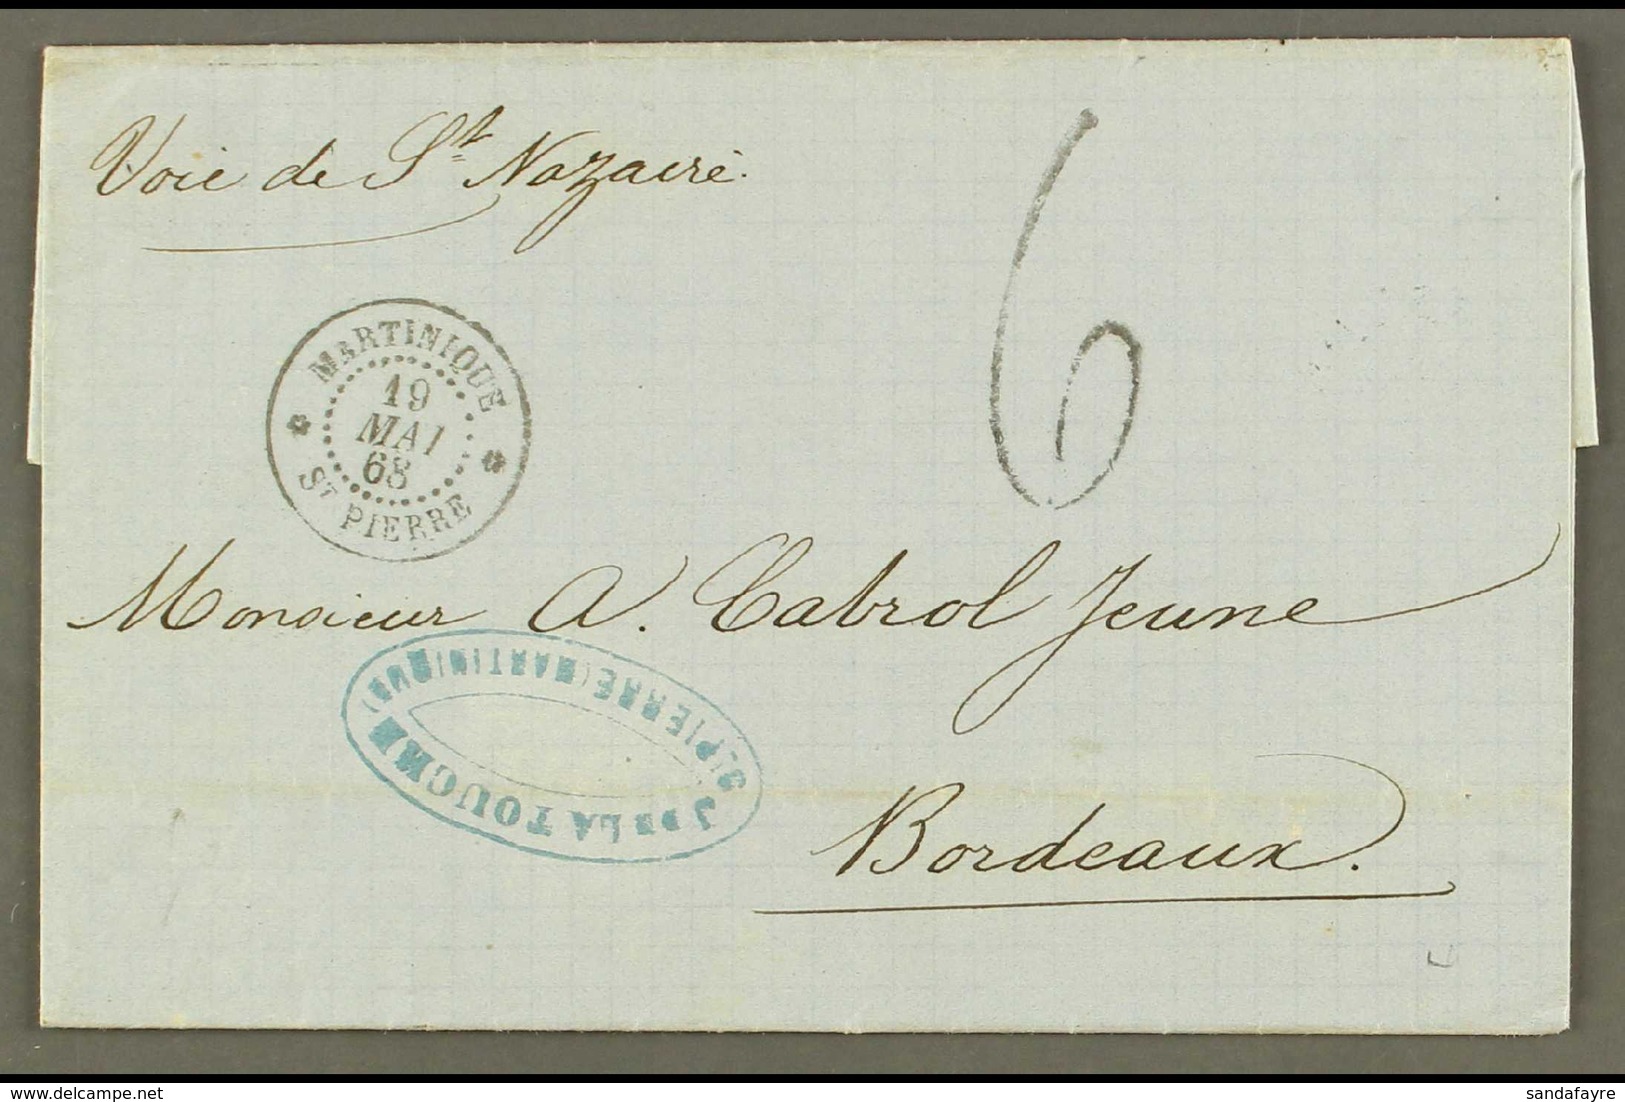 Voie de St Nazaire.
6
MARTINIQUE
19
MAI
68
ST PIERRE
Monsieur A. Cabrol Jeune
J DE LA TOUCHE
ST PIERRE (MARTINIQUE)
Bordeaux.
delcampe.net
sandafayre